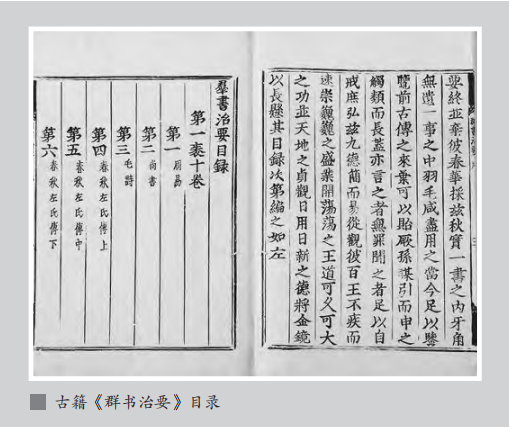 要終並棄彼春華採玆秋實一書之內牙角
無遺一事之中羽毛咸盡用之當今足以鑒
覽前古傳之來葉可以貽厥孫謀引而申之
觸類而長蓋亦言之者無罪聞之者足以自
戒庶弘玆九德簡而易從觀彼百王不疾而
速崇巍巍之盛業開蕩蕩之王道可久可大
之功並天地之貞觀日用日新之德將金鏡
以長懸其目録次第編之如左
羣書治要目録
第一袠十卷
第一 周易
第二 尚書
第三 毛詩
第四 春秋左氏傳上
第五 春秋左氏傳中
第六 春秋左氏傳下
古籍《群书治要》目录